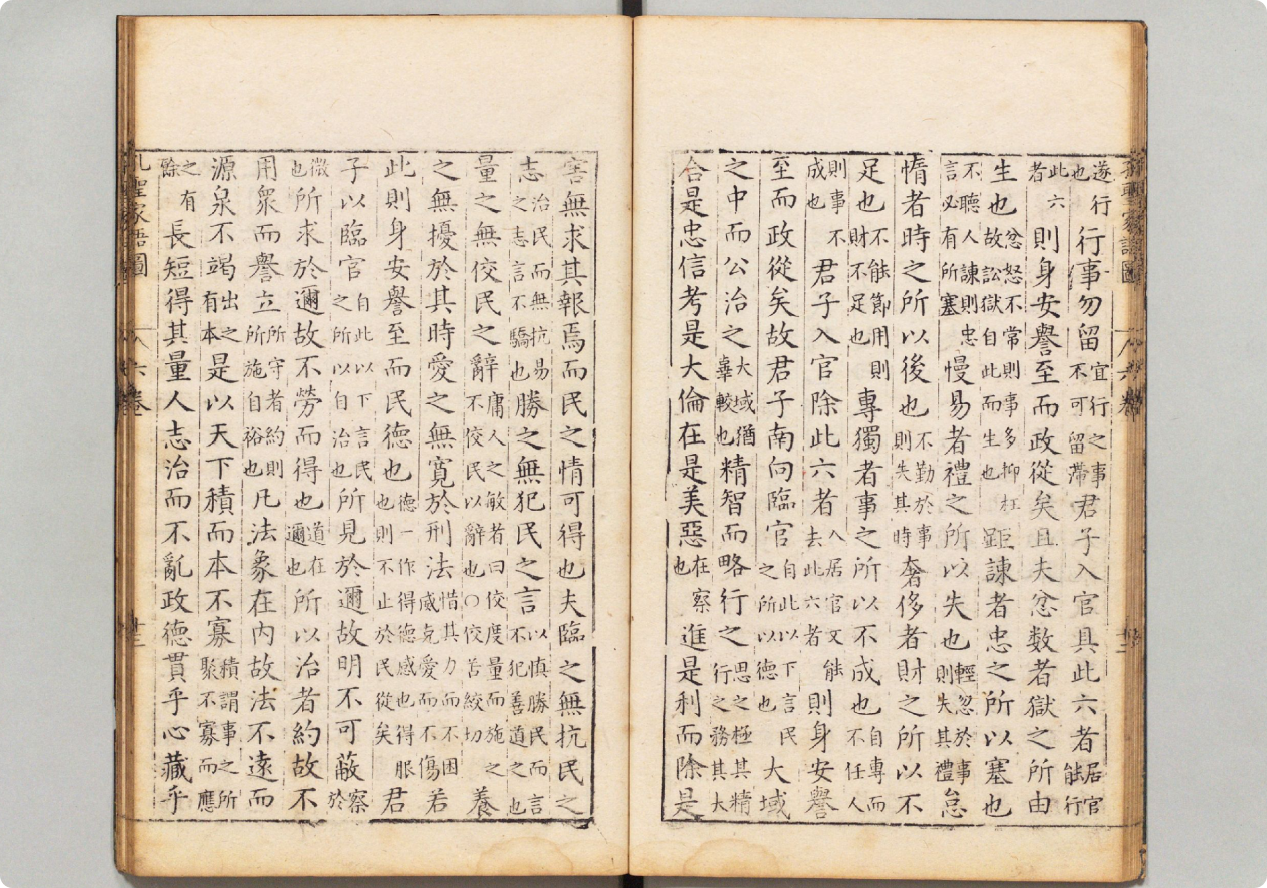 遂行也行事勿留宜行之事不可留滯君子入官具此六者居官能行
此六者則身安譽至而政從矣且夫忿數者獄之所由
生也忿怒不常則事多抑枉故訟獄自此而生也距諫者忠之所以塞也
不聽人諫則忠言必有所塞慢易者禮之所以失也輕忽於事則失其禮怠
惰者時之所以後也不勤於事則失其時奢侈者財之所以不
足也不能節用則財不足也專獨者事之所以不成也自專而不任人
則事不成也君子入官除此六者入居官文能去此六者則身安譽
至而政從矣故君子南向臨官自此以下言民之所以德也大域
之中而公治之大域猶辜較也精智而略行之思之極其精行之務其大
合是忠信考是大倫在是美惡在察也進是利而除是
害無求其報焉而民之情可得也夫臨之無抗民之
志治民而無抗易之志言不驕也勝之無犯民之言以慎勝民而言不犯善道之也
量之無佼民之辭庸人之敏者曰佼度量而施之不佼民以辭也〇佼苦絞切養
之無擾於其時愛之無寬於刑法惜其力而不困感克愛而不傷若
此則身安譽至而民德也德一作得德感也得服也則不止於民從矣君
子以臨官自此以下言民之所以自治也所見於邇故明不可蔽察於
微也所求於邇故不勞而得也道在邇也所以治者約故不
用衆而譽立所守者約則所施自裕也凡法象在內故法不遠而
源泉不竭出之有本是以天下積而本不寡積謂事之所聚不寡而應
之有餘長短得其量人志治而不亂政德貫乎心藏乎
孔聖家語圖 六卷